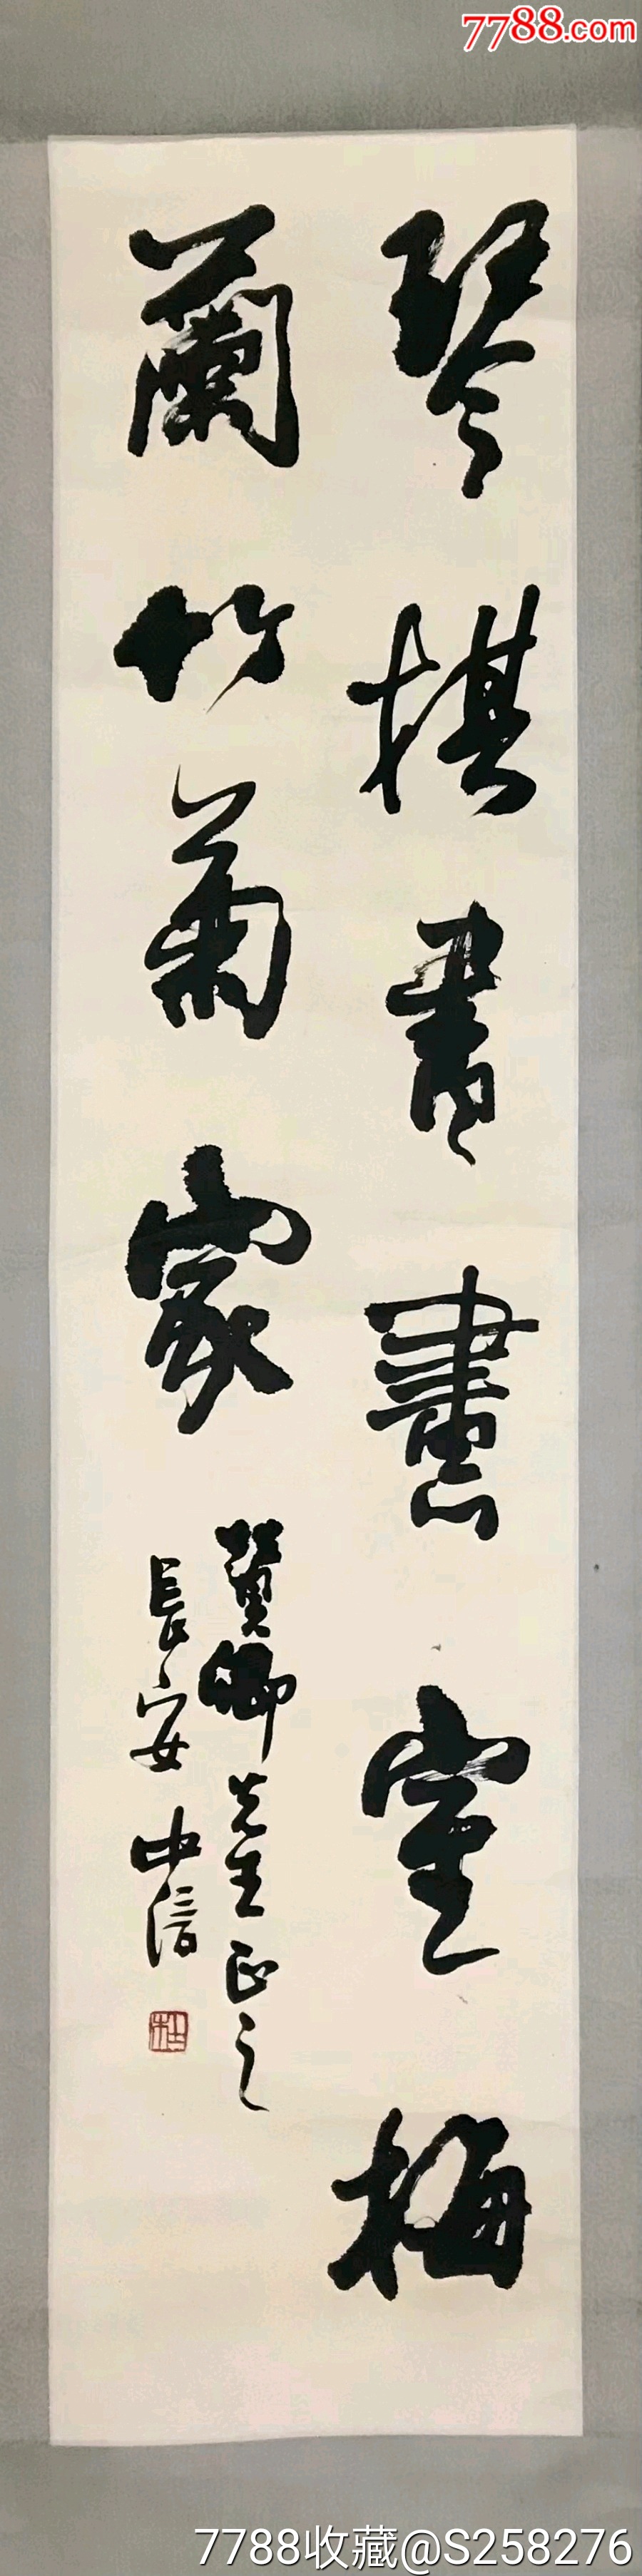 7788.com
琴棋書畫室梅
蘭竹菊家
賢卿先生正之
長安中信
7788收藏@S258276